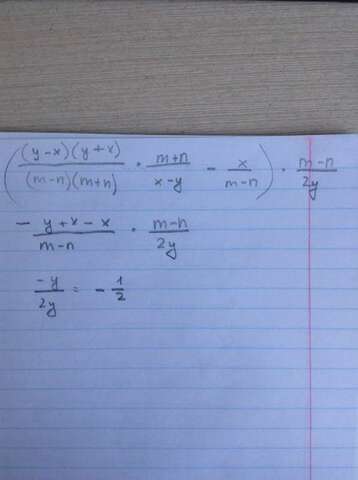 ((y-x)(y+x)/(m-n)(m+n) · m+n/x-y - x/m-n) · m-n/2y
- y+x-x/m-n · m-n/2y
-y/2y = -1/2